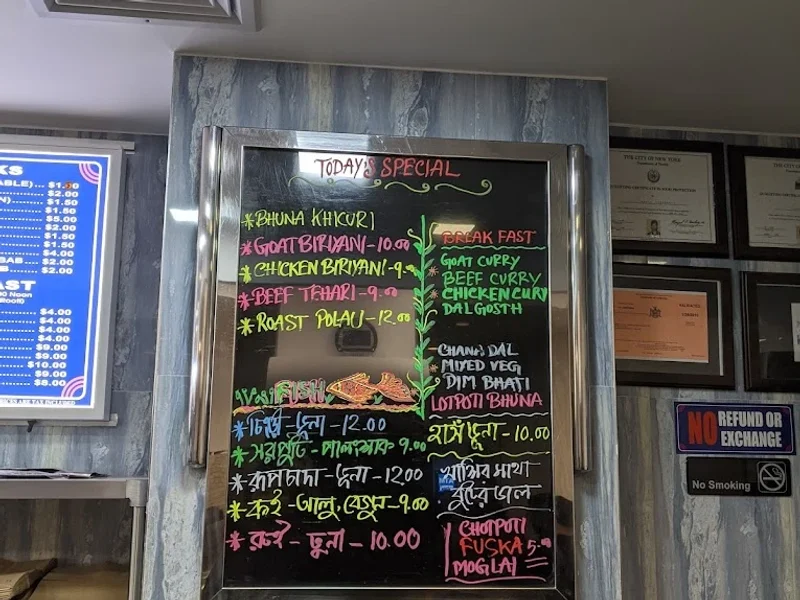 KS
ABLE) ... $1.00
$2.00
N) ... $1.50
$1.50
$5.00
$2.00
$1.50
$1.50
$4.00
BAB ... $2.00
B ... $2.00
AST
$4.00
$4.00
$4.00
$4.00
$9.00
$9.00
$10.00
$9.00
$9.00
$8.00
TODAY'S SPECIAL
* BHUNA KHICURI
* GOAT BIRIYANI - 10.00
* CHICKEN BIRIYANI - 9.00
* BEEF TEHARI - 9.00
* ROAST POLAU - 12.00
FISH
* চিংড়ী - ভুনা - 12.00
* সরপুটি - পালংশাক 9.00
* রূপচাদা - ভুনা - 12.00
* কই - আলু, বেগুন - 9.00
* রুই - ভুনা - 10.00
BREAK FAST
GOAT CURRY
BEEF CURRY
CHICKEN CURY
DAL GOSTH
CHANA DAL
MIXED VEG
DIM BHAJI
LOTPOTI BHUNA
হাঁস ভুনা - 10.00
খাসির মাথা
বুটের ডাল
CHOTPOTI
FUSKA 5.00
MOGLAI
THE CITY OF NEW YORK
NO REFUND OR
EXCHANGE
No Smoking